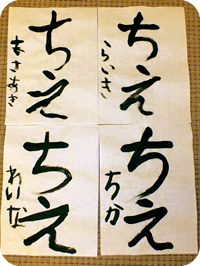 ちえ
らいき
ちえ
まさあき
ちえ
ちか
ちえ
れいな